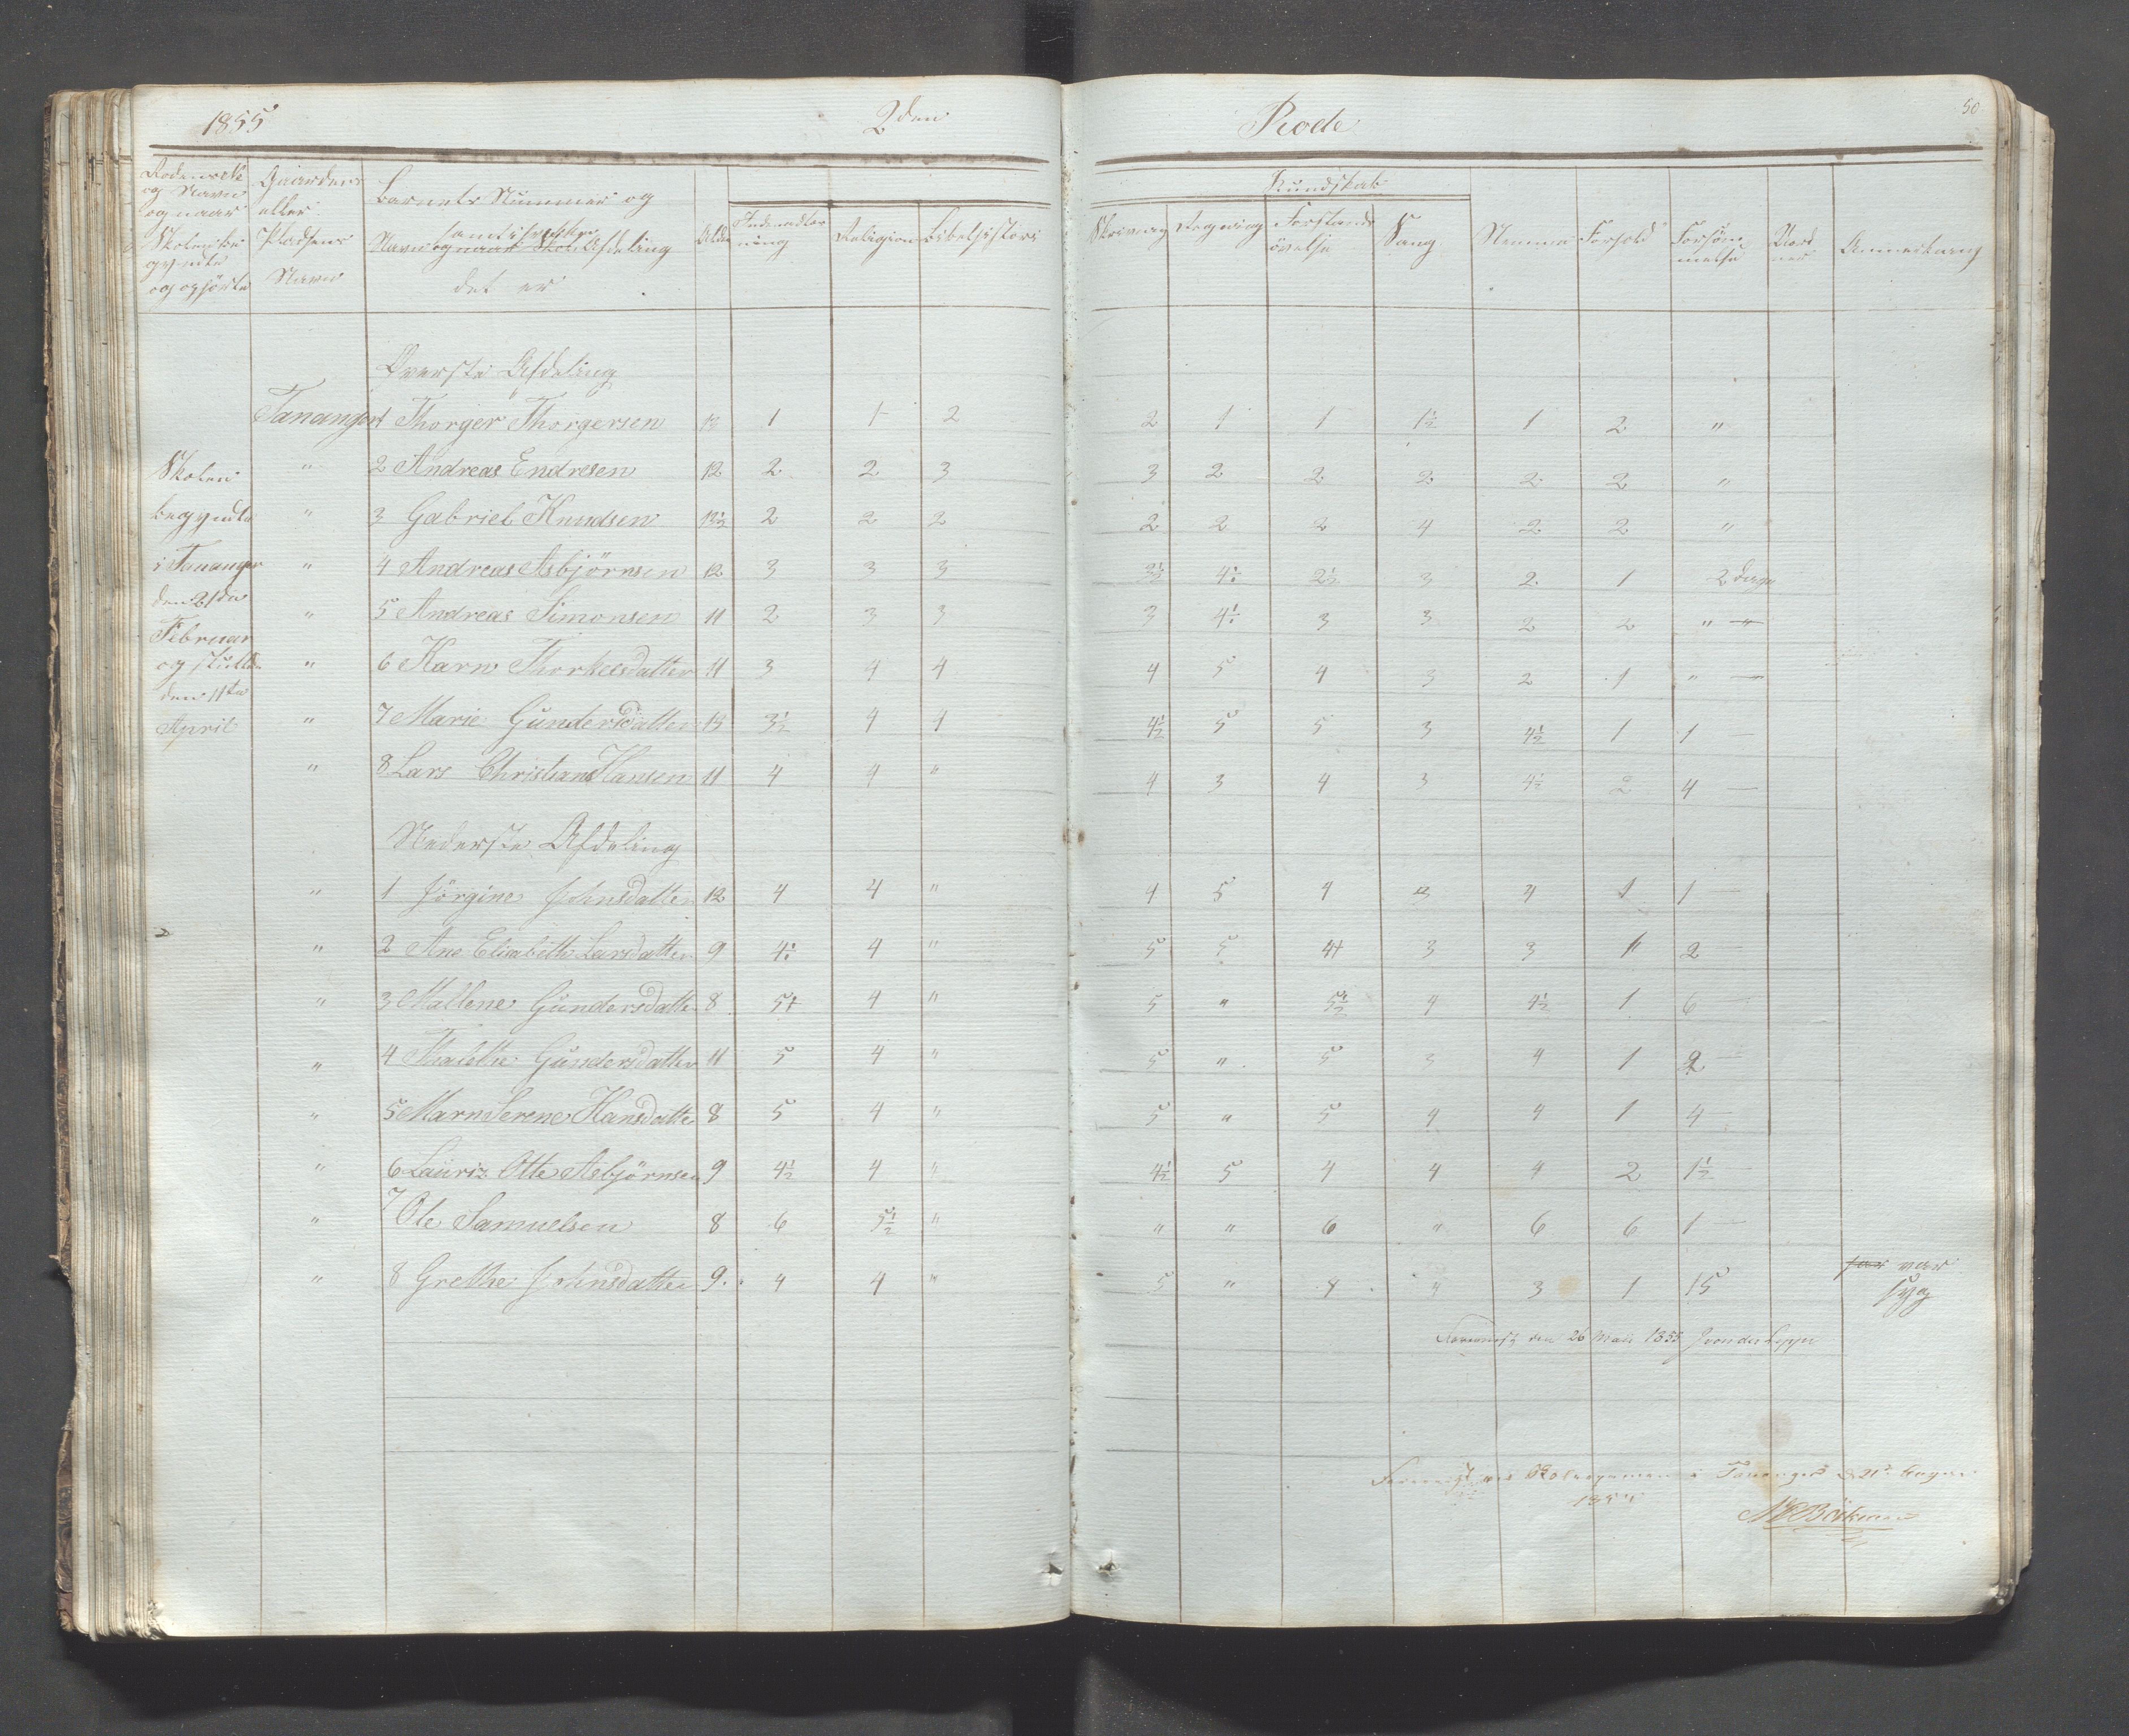 1855 2den Rode 50
og Navn Gaardens Barnets Nummer og Kundskab
og naar eller samt i hvilken
Skolen be Pladsens Navn og naar Skol Afdeling Alder Religion Bibelhistorie Skrivning Regning Forstands Sang Nemme Forhold Forsöm Anmerkning
gyndte Navn det er ning övelse melse
og ophörte
Överste Afdeling
Tananger 1 Thorger Thorgersen 1 1 2 2 1 1 1½ 1 2 "
Skolen " 2 Andreas Endresen 12 2 2 3 3 2 2 2 2 2 "
begyndte " 3 Gabriel Knudsen 13½ 2 2 2 2 2 2 4 2 2 "
i Tananger " 4 Andreas Asbjörnsen 12 3 3 3 3½ 4÷ 2½ 3 2 1 2 dage
den 21de
Februar " 5 Andreas Simonsen 11 2 3 3 3 4÷ 3 3 2 2 " —
og sluttede " 6 Karn Thorkelsdatter 11 3 4 4 4 5 4 3 2 1 " —
den 11te
April " 7 Marie Gundersdatter 13 3½ 4 4 4½ 5 5 3 4½ 1 1 —
" 8 Lars Christian Hansen 11 4 4 " 4 3 4 3 4½ 2 4 —
Nederste Afdeling
" 1 Jörgine Johnsdatter 12 4 4 " 4 5 4 3 4 1 1 —
" 2 Ane Elisabeth Larsdatter 9 4÷ 4 " 5 5 4+ 3 3 1 2 —
" 3 Mallene Gundersdatter 8 5+ 4 " 5 " 5½ 4 4½ 1 6 —
" 4 Gundersdatter 11 5 4 " 5 " 5 3 4 1 2 —
" 5 Marn Serene Hansdatter 8 5 4 " 5 " 5 4 4 1 4 —
" 6 Lauriz Otte Asbjörnsen 9 4½ 4 " 4½ 5 4 4 4 2 1½ —
" 7 Ole Samuelsen 8 6 5½ " " " 6 " 6 6 1 —
" 8 Grethe Johnsdatter 9 4 4 " 5 " 4 4 3 1 15 var
syg
Foreviist den 26 Mai 1855
Foreviist ved Skoleexamen i Tananger d 21de August
1855